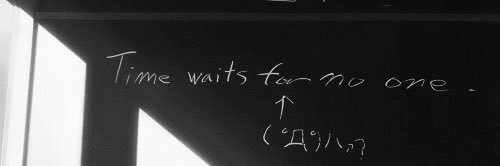 Time waits for no one.
↑
( ゚Д゚)ハァ?